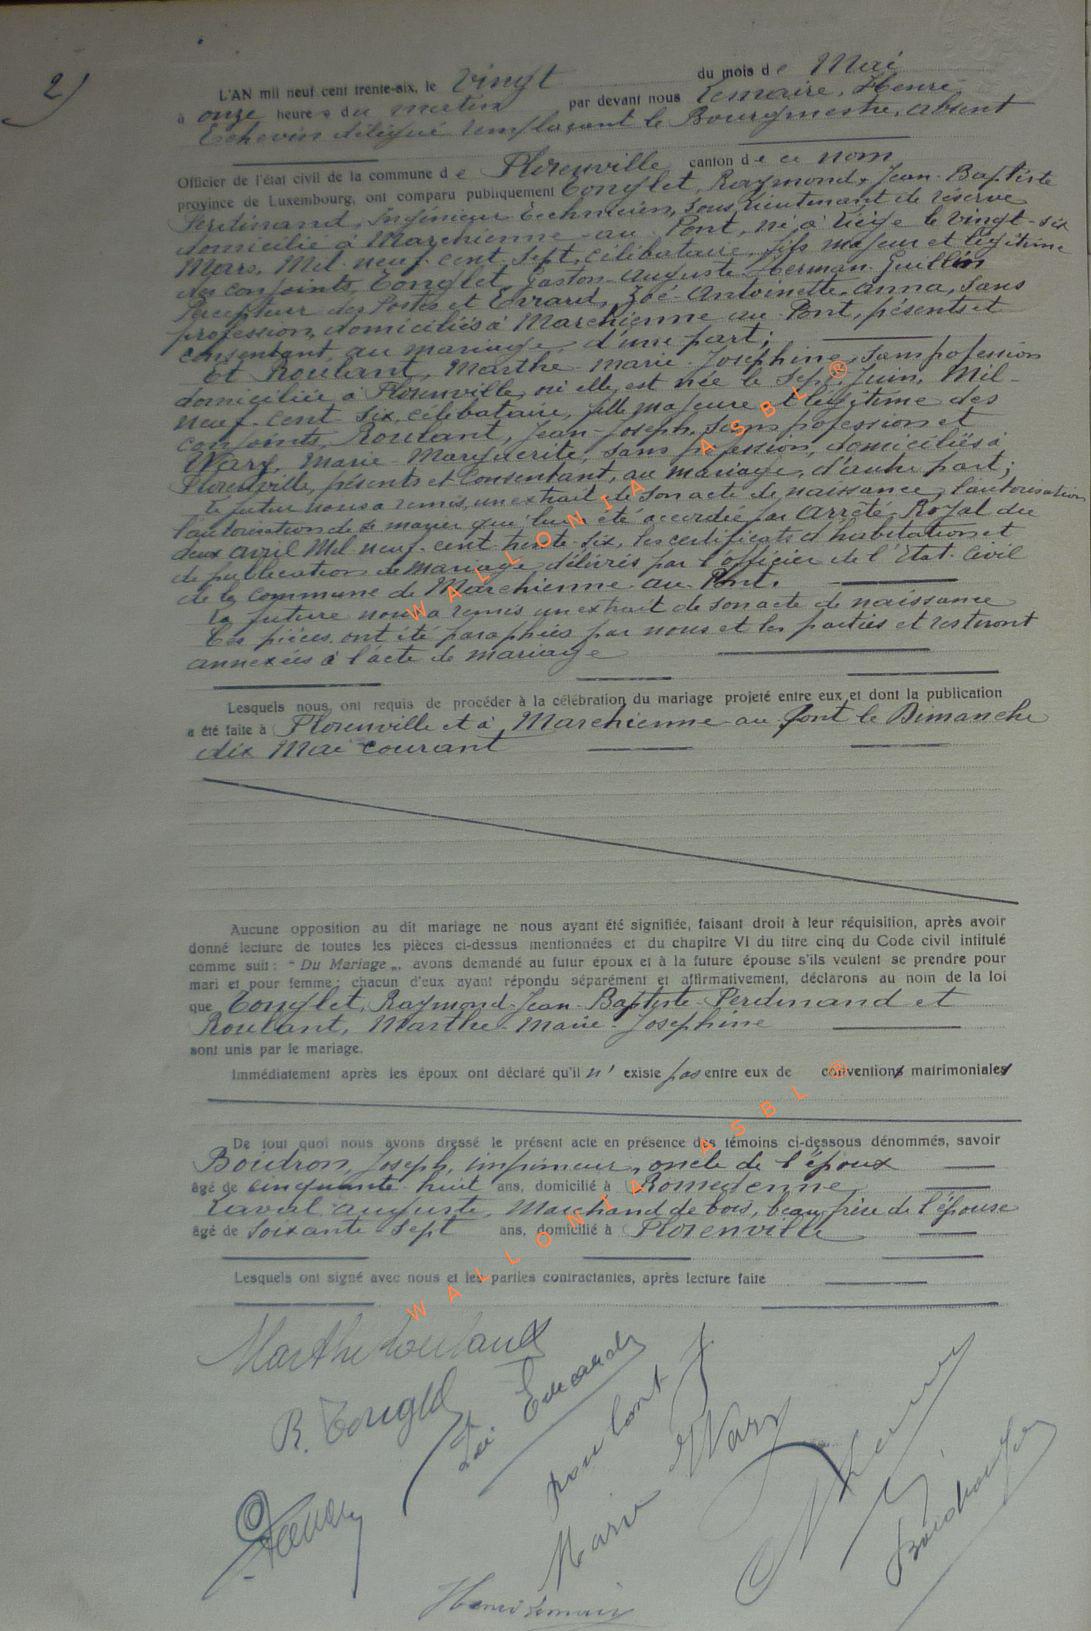 2)
L'AN mil neuf cent trente-six, le vingt du mois de Mai
à onze heures du matin par devant nous Lemaire, Henri
Echevin délégué remplaçant le Bourgmestre, absent
Officier de l'état civil de la commune de Florenville canton de ce nom
province de Luxembourg, ont comparu publiquement Tonglet, Raymond, Jean-Baptiste
Ferdinand, Ingénieur technicien, sous lieutenant de réserve
domicilié à Marchienne au Pont, né à Liège le vingt-six
Mars, Mil neuf cent sept, célibataire, fils majeur et légitime
des conjoints Tonglet, Gaston-Auguste-Herman-Guillin
Percepteur des Postes et Evrard, Zoé-Antoinette-Anna, sans
profession, domiciliés à Marchienne au Pont, présents et
consentant au mariage d'une part;
Et Roulant, Marthe-Marie-Joséphine, sans profession
domiciliée à Florenville où elle est née le sept Juin, Mil-
neuf-cent six, célibataire, fille majeure et légitime des
conjoints Roulant, Jean-Joseph, sans profession et
Warx, Marie-Marguerite, sans profession, domiciliés à
Florenville, présents et consentant, au mariage, d'autre part;
le futur nous a remis, un extrait de son acte de naissance, l'autorisation
l'autorisation de se marier que lui a été accordée par Arrêté Royal du
deux avril Mil neuf-cent trente-six, les certificats d'habitation et
de publication de mariage, délivrés par l'officier de l'Etat-Civil
de la commune de Marchienne au Pont.
La future nous a remis un extrait de son acte de naissance
Ces pièces ont été paraphées par nous et les parties et resteront
annexées à l'acte de mariage
Lesquels nous ont requis de procéder à la célébration du mariage projeté entre eux et dont la publication
a été faite à Florenville et à Marchienne au Pont le Dimanche
dix Mai courant
Aucune opposition au dit mariage ne nous ayant été signifiée, faisant droit à leur réquisition, après avoir
donné lecture de toutes les pièces ci-dessus mentionnées et du chapitre VI du titre cinq du Code civil intitulé
comme suit : " Du Mariage „, avons demandé au futur époux et à la future épouse s'ils veulent se prendre pour
mari et pour femme ; chacun d'eux ayant répondu séparément et affirmativement, déclarons au nom de la loi
que Tonglet, Raymond-Jean-Baptiste-Ferdinand et
Roulant, Marthe-Marie-Joséphine
sont unis par le mariage.
Immédiatement après les époux ont déclaré qu'il n' existe pas entre eux de conventions matrimoniales
De tout quoi nous avons dressé le présent acte en présence des témoins ci-dessous dénommés, savoir
Boidron, Joseph, imprimeur, oncle de l'époux
âgé de cinquante huit ans, domicilié à Romedenne
Laval Auguste, Marchand de bois, beau frère de l'épouse
âgé de soixante sept ans, domicilié à Florenville
Lesquels ont signé avec nous et les parties contractantes, après lecture faite
Marthe Roulant
R. Tonglet
Roulant J
Marie Warx
Henri Lemaire
WALLONIA ASBL ®
WALLONIA ASBL ®